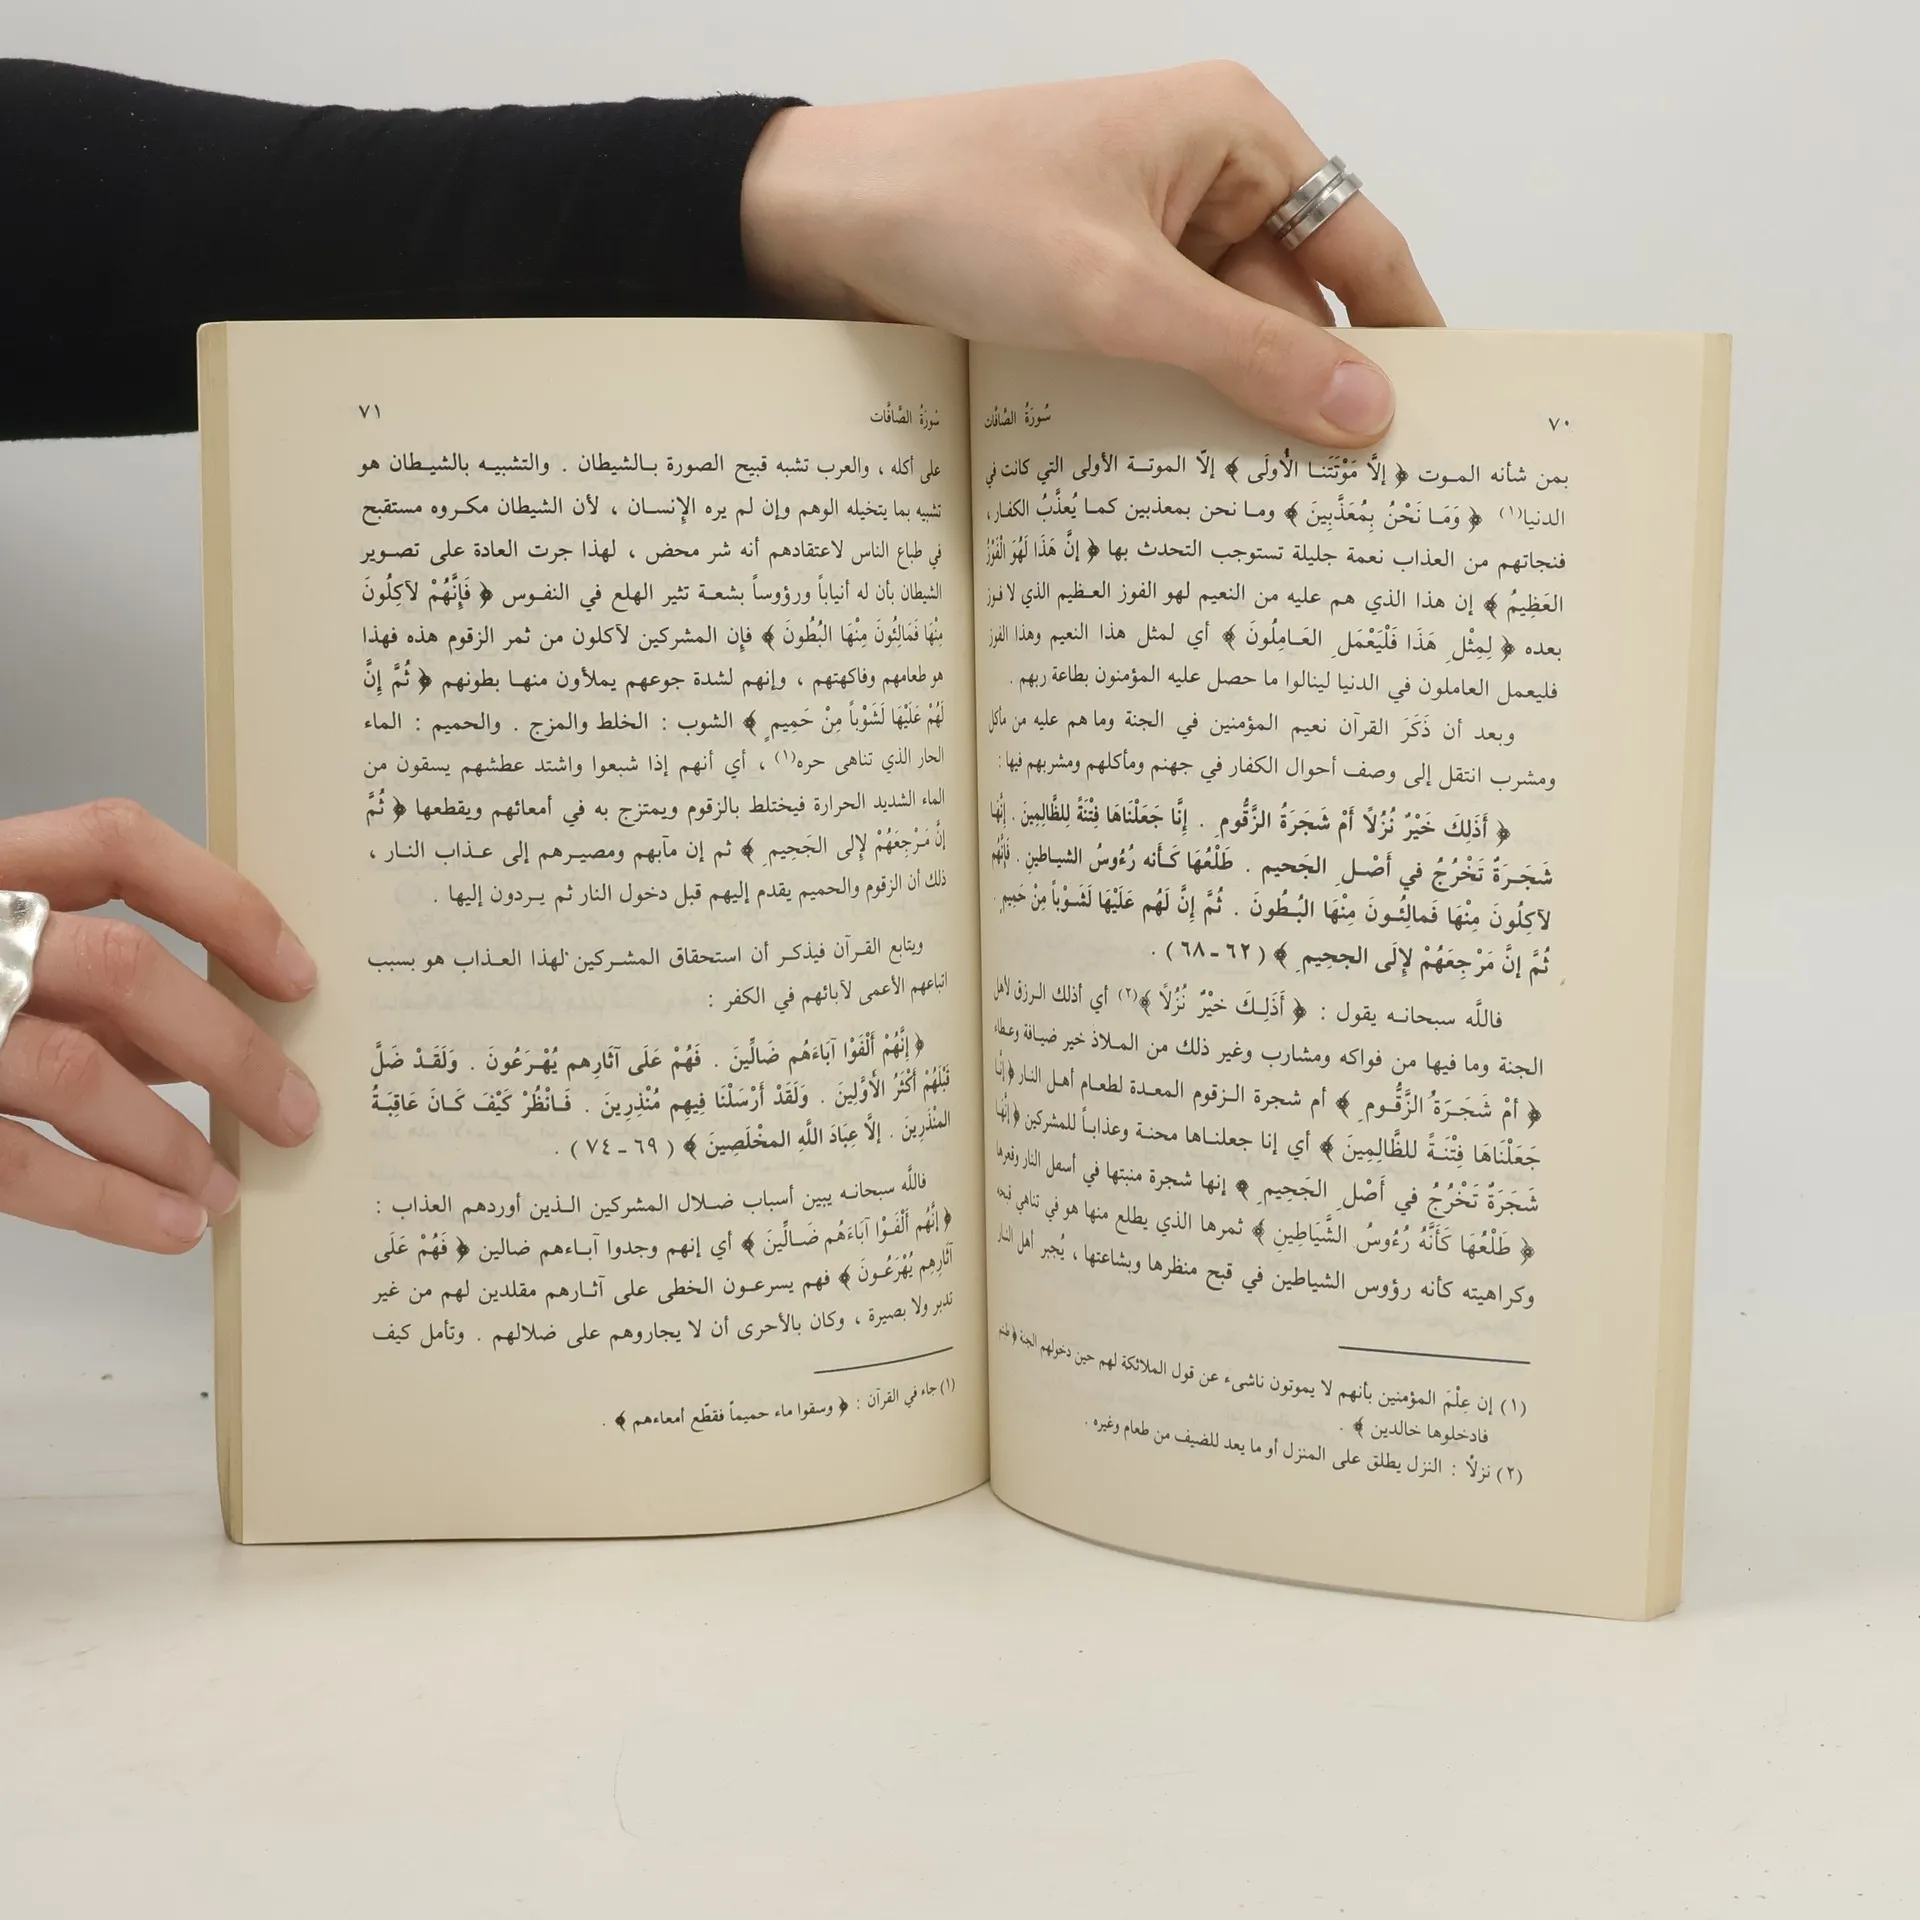 ٧٠ سُورَةُ الصَّافَّات
بمن شأنه المـوت ﴿ إلَّا مَوْتَتَنـا الْأُولَى ﴾ إلّا الموتـة الأولى التي كانت في
الدنيا(١) ﴿ وَمَـا نَحْنُ بِمُعَذَّبِينَ ﴾ ومـا نحن بمعذبين كمـا يُعذَّبُ الكفار،
فنجاتهم من العذاب نعمة جليلة تستوجب التحدث بها ﴿ إنَّ هَذَا لَهُوَ الْفَوْزُ
العَظِيمُ ﴾ إن هذا الذي هم عليه من النعيم لهو الفوز العـظيم الذي لا فـوز
بعده ﴿ لِمِثْلِ هَذَا فَلْيَعْمَلِ العَـامِلُونَ ﴾ أي لمثل هذا النعيم وهذا الفوز
فليعمل العاملون في الدنيا لينالوا ما حصل عليه المؤمنون بطاعة ربهم .
وبعد أن ذَكَرَ القرآن نعيم المؤمنين في الجنة وما هم عليه من مأكل
ومشرب انتقل إلى وصف أحوال الكفار في جهنم ومأكلهم ومشربهم فيها :
﴿ أَذَلِكَ خَيْرٌ نُزُلًا أَمْ شَجَرَةُ الزَّقُّومِ . إِنَّا جَعَلْنَاهَا فِتْنَةً لِلظَّالِمِينَ . إِنَّهَا
شَجَـرَةٌ تَخْرُجُ في أَصْـلِ الجَحيم . طَلْعُهَا كَـأَنه رُءُوسُ الشياطين . فَإِنَّهُم
لآكِلُونَ مِنْهَا فَمالِئُـونَ مِنْهَا البُـطُونَ . ثُمَّ إِنَّ لَهُم عَلَيْهَا لَشَوْباً مِنْ حَمِيمٍ .
ثُمَّ إنَّ مَرْجِعَهُمْ لإِلَى الجحِيم ﴾ ( ٦٢ ـ ٦٨ ) .
فاللَّه سبحانـه يقول : ﴿ أَذَلِـكَ خيْرٌ نُزُلًا ﴾(٢) أي أذلك الـرزق لأهل
الجنة وما فيها من فواكه ومشارب وغير ذلك من المـلاذ خير ضيافة وعطاء
﴿ أمْ شَجَـرَةُ الزَّقُّـومِ ﴾ أم شجرة الـزقوم المعـدة لطعام أهـل النـار ﴿ إنَّـا
جَعَلْنَاهَا فِتْنَـةً للظَّالِمِينَ ﴾ أي إنا جعلنـاها محنة وعذابـاً للمشركين ﴿ إنَّهَا
شَجَرَةٌ تَخْرُجُ في أَصْلِ الجَحِيمِ ﴾ إنها شجرة منبتها في أسفل النار وقعرها
﴿ طَلْعُهَا كَأَنَّهُ رُءُوسُ الشَّيَاطِينِ ﴾ ثمرها الذي يطلع منها هو في تناهي قبحه
وكراهيته كأنه رؤوس الشياطين في قبح منظرها وبشاعتها ، يُجبر أهل النـار
(١) إن عِلْمَ المؤمنين بأنهم لا يموتون ناشىء عن قول الملائكة لهم حين دخولهم الجنة ﴿ طبتم
فادخلوها خالدين ﴾ .
(٢) نزلًا : النزل يطلق على المنزل أو ما يعد للضيف من طعام وغيره .
سُورَةُ الصَّافَّات ٧١
على أكله ، والعرب تشبه قبيح الصورة بـالشيطان . والتشبيـه بالشيـطان هو
تشبيه بما يتخيله الوهم وإن لم يره الإنسـان ، لأن الشيطان مكـروه مستقبح
في طباع الناس لاعتقادهم أنه شر محض ، لهذا جرت العادة على تصـوير
الشيطان بأن له أنياباً ورؤوساً بشعـة تثير الهلع في النفـوس ﴿ فَإِنَّهُمْ لآكِلُونَ
مِنْهَا فَمَالِئُونَ مِنْهَا البُطُونَ ﴾ فإن المشركين لآكلون من ثمر الزقوم هذه فهذا
هو طعامهم وفاكهتهم ، وإنهم لشدة جوعهم يملأون منهـا بطونهم ﴿ ثُمَّ إِنَّ
لَهُمْ عَلَيْهَا لَشَوْباً مِنْ حَمِيمٍ ﴾ الشوب : الخلط والمزج . والحميم : الماء
الحار الذي تناهى حره(١) ، أي أنهم إذا شبعوا واشتد عطشهم يسقون من
الماء الشديد الحرارة فيختلط بالزقوم ويمتزج به في أمعائهم ويقطعها ﴿ ثُمَّ
إنَّ مَـرْجِعَهُمْ لإِلى الجَحِيمِ ﴾ ثم إن مآبهم ومصيـرهم إلى عـذاب النـار ،
ذلك أن الزقوم والحميم يقدم إليهم قبل دخول النار ثم يـردون إليها .
ويتابع القرآن فيذكـر أن استحقاق المشـركين لهذا العـذاب هو بسبب
اتباعهم الأعمى لآبائهم في الكفر :
﴿ إنَّهُمْ أَلْفَوْا آبَاءَهُم ضَالِّينَ . فَهُمْ عَلَى آثَارِهم يُهْـرَعُونَ . وَلَقَـدْ ضَلَّ
قَبْلَهُمْ أَكْثَرُ الأَوَّلِينَ . وَلَقَدْ أَرْسَلْنَا فِيهِم مُنْذِرِينَ . فَـانْظُرْ كَيْفَ كَـانَ عَاقِبَـةُ
المنْذَرِينَ . إلَّا عِبَادَ اللَّهِ المخْلَصِينَ ﴾ ( ٦٩ ـ ٧٤ ) .
فاللَّه سبحانـه يبين أسباب ضـلال المشركين الـذين أوردهم العذاب :
﴿ إنَّهُم أَلْفَـوْا آبَاءَهُم ضَـالِّينَ ﴾ أي إنهم وجدوا آبـاءهم ضالين ﴿ فَهُمْ عَلَى
آثَارِهِم يُهْرَعُـونَ ﴾ فهم يسرعـون الخطى على آثـارهم مقلدين لهم من غير
تدبر ولا بصيرة ، وكان بالأحرى أن لا يجاروهم على ضلالهم . وتأمل كيف
(١) جاء في القرآن : ﴿ وسقوا ماء حميماً فقطّع أمعاءهم ﴾ .